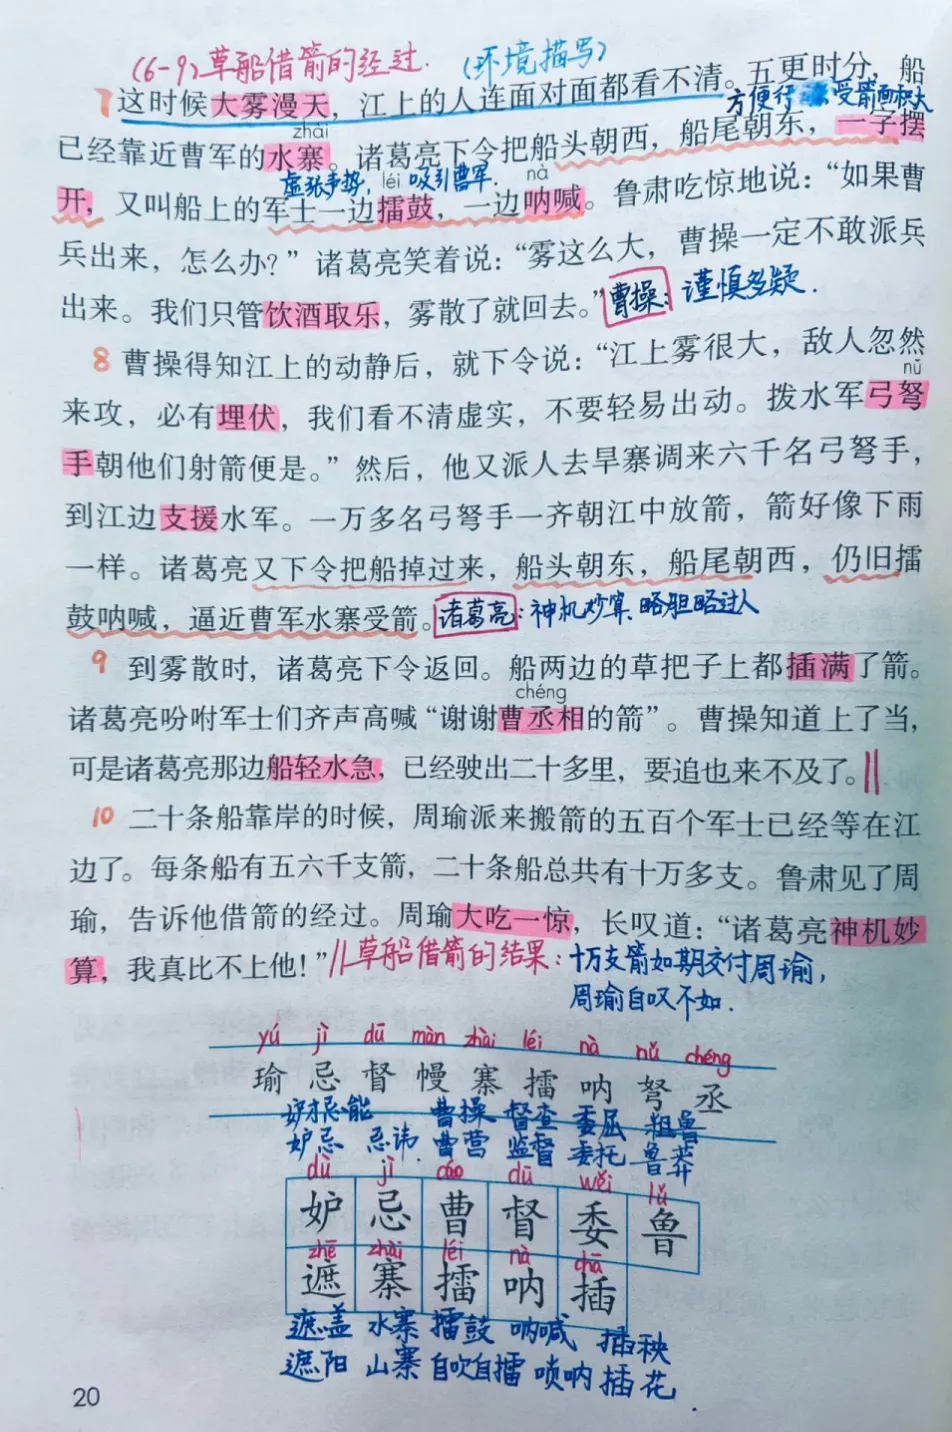 (6-9)草船借箭的经过. (环境描写)
7 这时候大雾漫天，江上的人连面对面都看不清。五更时分，船
方便行 受箭面积大
zhài
已经靠近曹军的水寨。诸葛亮下令把船头朝西，船尾朝东，一字摆
虚张声势， léi 吸引曹军. nà
开，又叫船上的军士一边擂鼓，一边呐喊。鲁肃吃惊地说：“如果曹
兵出来，怎么办？”诸葛亮笑着说：“雾这么大，曹操一定不敢派兵
出来。我们只管饮酒取乐，雾散了就回去。” 曹操：谨慎多疑.
8 曹操得知江上的动静后，就下令说：“江上雾很大，敌人忽然
nǔ
来攻，必有埋伏，我们看不清虚实，不要轻易出动。拨水军弓弩
手朝他们射箭便是。”然后，他又派人去旱寨调来六千名弓弩手，
到江边支援水军。一万多名弓弩手一齐朝江中放箭，箭好像下雨
一样。诸葛亮又下令把船掉过来，船头朝东，船尾朝西，仍旧擂
鼓呐喊，逼近曹军水寨受箭。 诸葛亮：神机妙算、略胆略过人
9 到雾散时，诸葛亮下令返回。船两边的草把子上都插满了箭。
chéng
诸葛亮吩咐军士们齐声高喊“谢谢曹丞相的箭”。曹操知道上了当，
可是诸葛亮那边船轻水急，已经驶出二十多里，要追也来不及了。
10 二十条船靠岸的时候，周瑜派来搬箭的五百个军士已经等在江
边了。每条船有五六千支箭，二十条船总共有十万多支。鲁肃见了周
瑜，告诉他借箭的经过。周瑜大吃一惊，长叹道：“诸葛亮神机妙
算，我真比不上他！” 草船借箭的结果：十万支箭如期交付周瑜，
周瑜自叹不如.
yú jì dū màn zhài léi nà nǔ chéng
瑜 忌 督 幔 寨 擂 呐 弩 丞
妒根能 曹操 督查 委屈 粗鲁
妒忌 忌讳 曹营 监督 委托 鲁莽
dù jì cáo dū wěi lǔ
妒 忌 曹 督 委 鲁
zhē zhài léi nà chā
遮 寨 擂 呐 插
遮盖 水寨 擂鼓 呐喊 插秧
遮阳 山寨 自吹自擂 唢呐 插花.
20